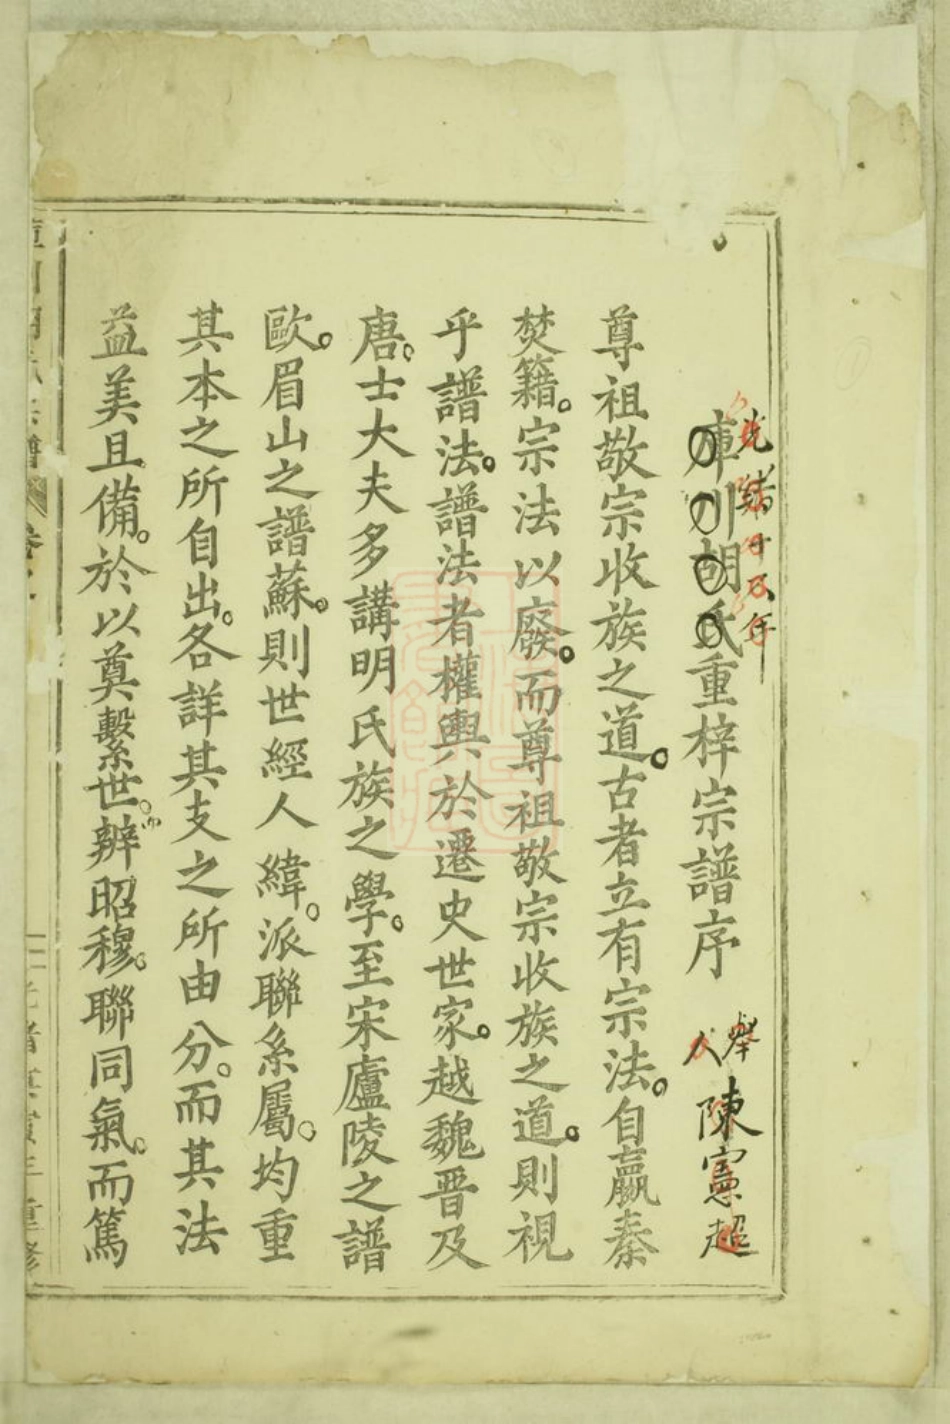 光緒十八年
庫川胡氏重梓宗譜序
舉人
陳憲超
尊祖敬宗收族之道。古者立有宗法。自嬴秦
焚籍。宗法以廢。而尊祖敬宗收族之道。則視
乎譜法。譜法者權輿於遷史世家。越魏晉及
唐。士大夫多講明氏族之學。至宋廬陵之譜
歐。眉山之譜蘇。則世經人緯。派聯系屬。均重
其本之所自出。各詳其支之所由分。而其法
益美且備。於以奠繫世。辨昭穆。聯同氣。而篤